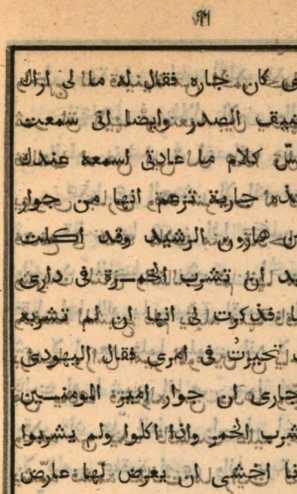 ٩٦
كان جاره فقال له ما لى اراك
ضيق الصدر وايضا انى سمعت
كلام ما عادتى اسمعه عندك
جارية تزعم انها من جوار
هارون الرشيد وقد اكلت
ان تشرب الخمرة فى دارى
فذكرت لى انها ان لم تشربه
تحيرت فى امرى فقال اليهودى
جارى ان جوار امير المومنين
شرب الخمر واذا اكلوا ولم يشربوا
اخشى ان يعرض لها عارض